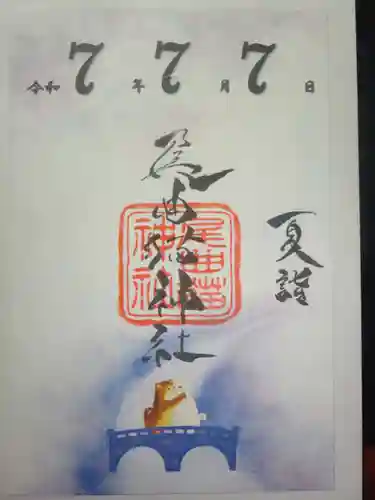 令和7年7月7日
夏詣
尾曲猫神社
尾曲猫神社